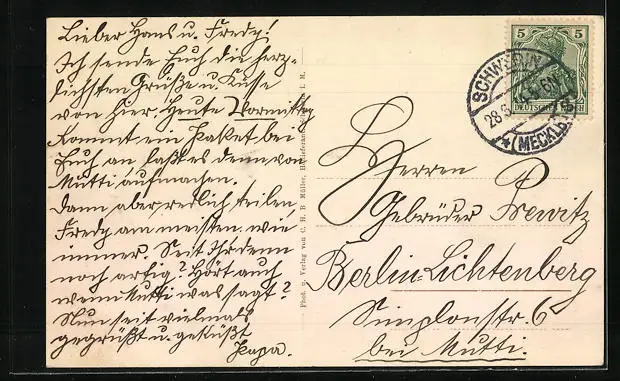 Lieber Hans u. Fredy!
Ich sende Euch die herz-
lichsten Grüße u. Küsse
von hier. Heute Vormittag
kommt ein Paket bei
Euch an, laßt es denn von
Mutti aufmachen.
Dann aber redlich teilen,
Fredy am meisten, wie
immer. Seit Ihr denn
noch artig? Hört auch
wenn Mutti was sagt?
Nun seit vielmals
gegrüßt u. geküßt
Papa.
Phot. u. Verlag von C. H. B Müller,
SCHWERIN
(MECKLB.)
5 5
DEUTSCHES REICH
Herren
Gebrüder Prewitz
Berlin-Lichtenberg
Simplonstr. 6
bei Mutti.